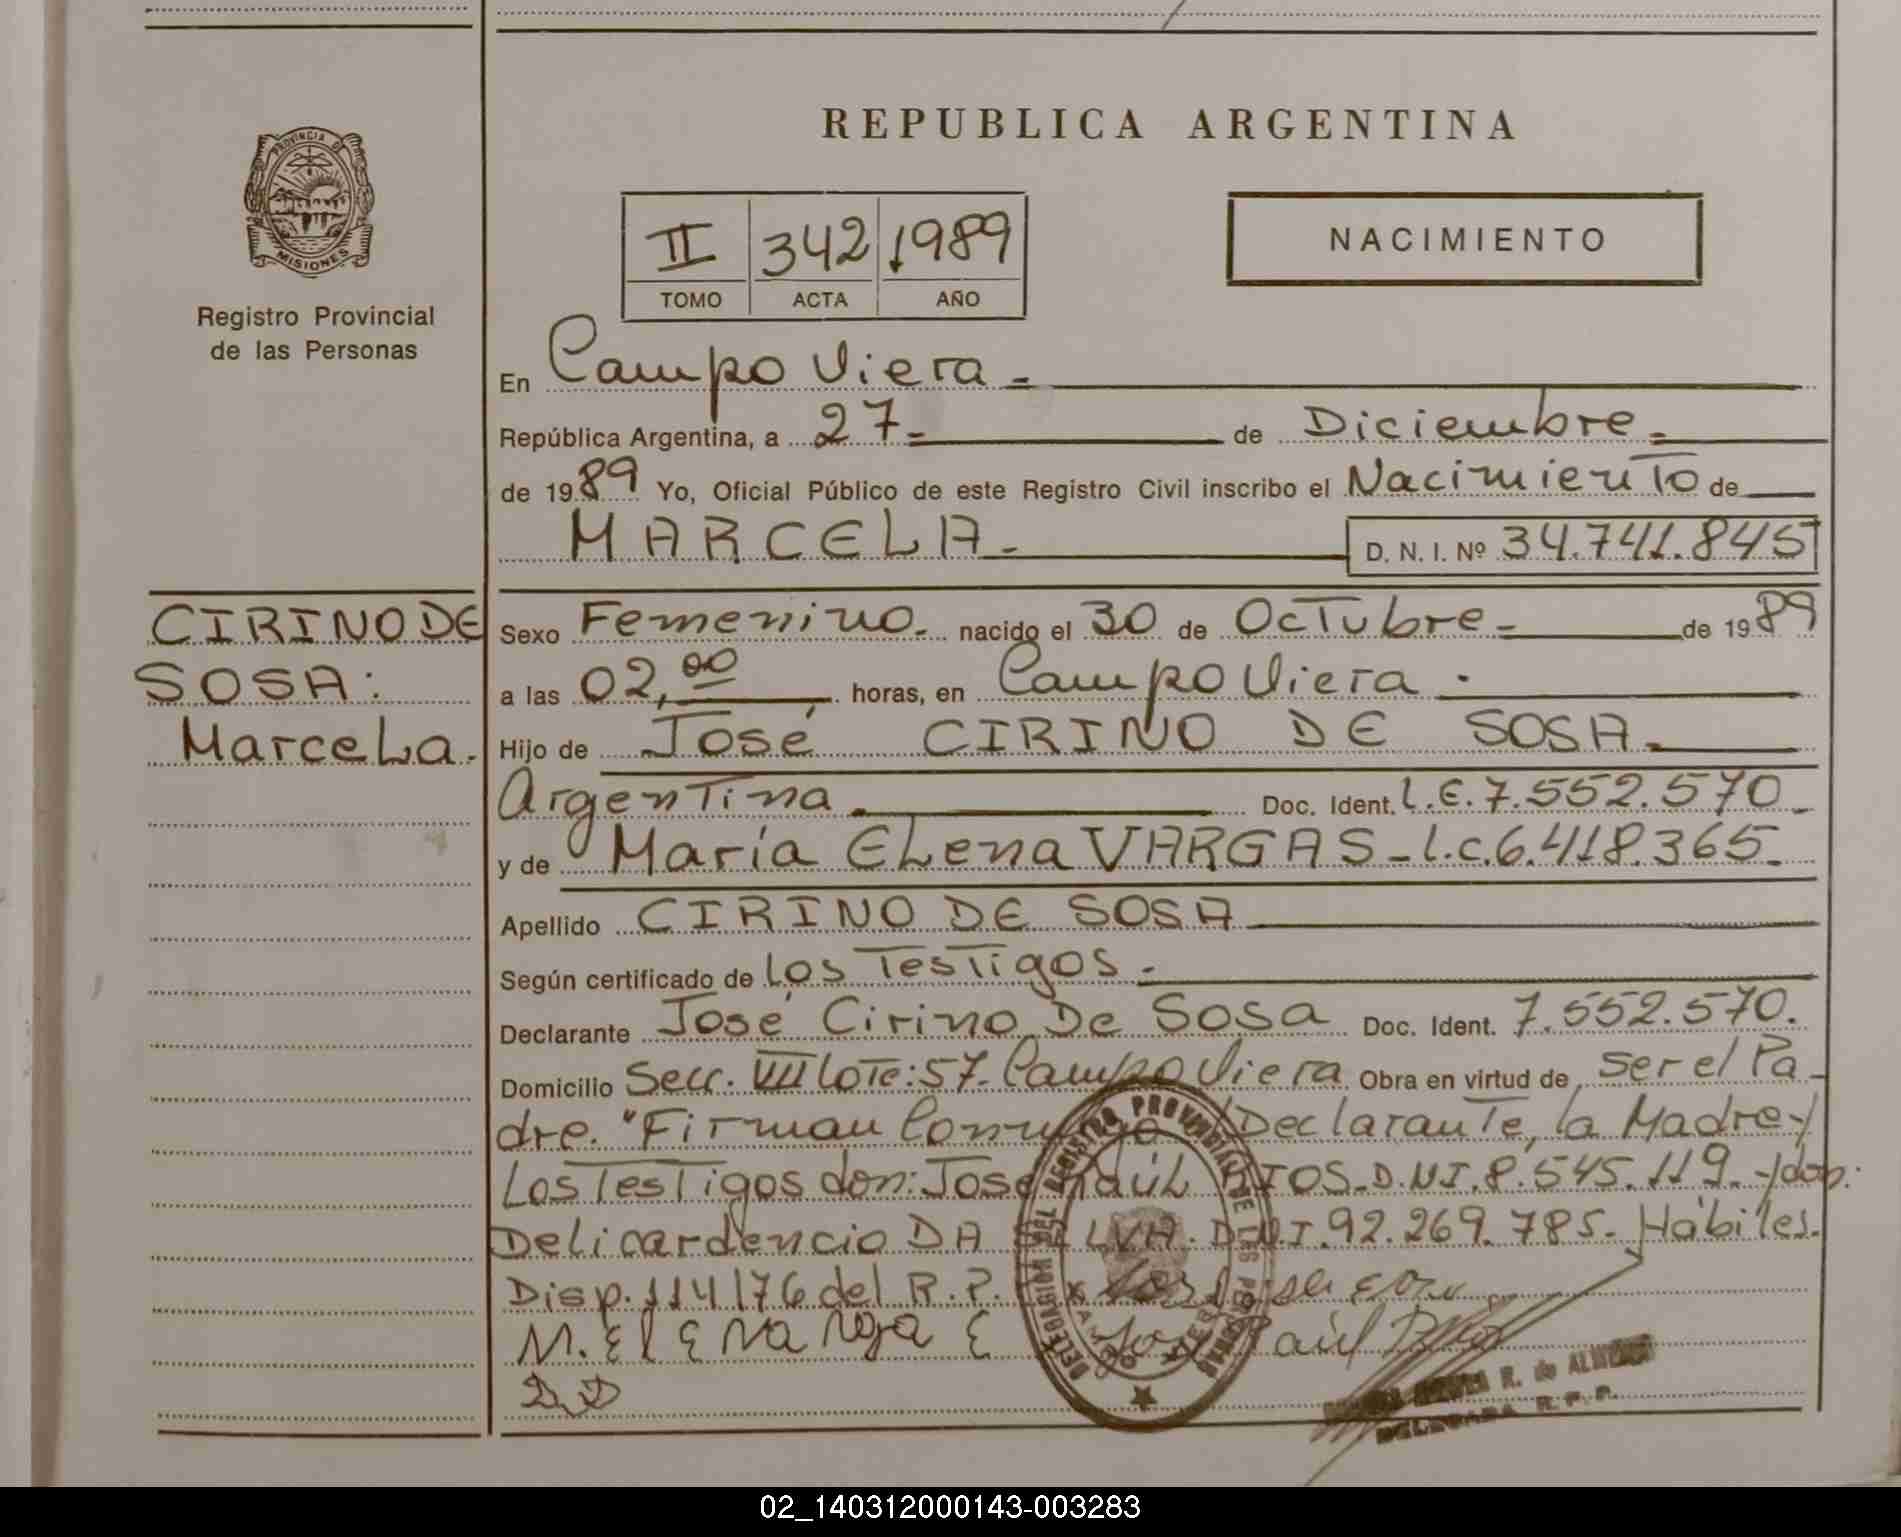 REPUBLICA ARGENTINA
PROVINCIA DE
MISIONES
Registro Provincial
de las Personas
II 342 1989
TOMO ACTA AÑO
NACIMIENTO
En Campo Viera -
República Argentina, a 27= de Diciembre =
de 1989 Yo, Oficial Público de este Registro Civil inscribo el Nacimiento de
MARCELA - D. N. I. Nº 34.741.845
CIRINO DE
SOSA:
Marcela.
Sexo Femenino. nacido el 30 de Octubre - de 1989
a las 02,00 horas, en Campo Viera -
Hijo de José CIRINO DE SOSA -
Argentina. Doc. Ident. L.E. 7.552.570 -
y de María Elena VARGAS - L.C. 6.418.365 -
Apellido CIRINO DE SOSA
Según certificado de Los Testigos. -
Declarante José Cirino De Sosa Doc. Ident. 7.552.570.
Domicilio Secc. VIII Lote: 57. Campo Viera Obra en virtud de ser el Pa-
dre. "Firman Declarante, la Madre y
Los Testigos don: José Raúl RIOS - D.N.I. 8.545.119 - y don:
Delicardencio DA SILVA. D.N.I. 92.269.785 - Hábiles.
Disp. 114/76 del R.P.
M. ELENA José Raúl
DELEGACION DEL REGISTRO PROVINCIAL DE LAS PERSONAS
CAMPO VIERA
R. de ALMEIDA
DELEGADA R. P. P.
02_140312000143-003283